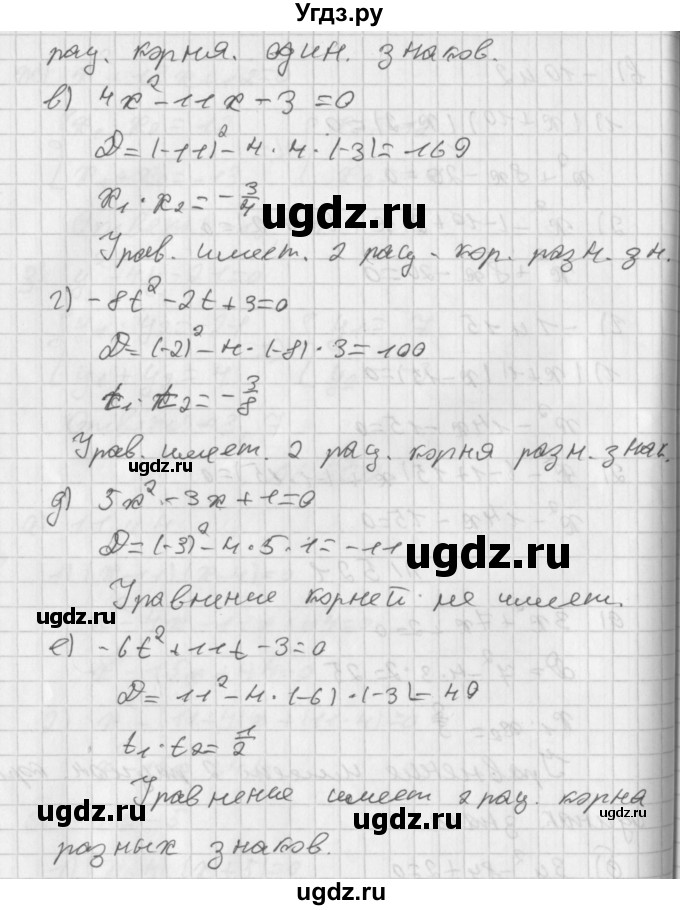 Угдз.ру
рац. корня. один. знаков.
в) 4x² - 11x - 3 = 0
D = (-11)² - 4 · 4 · (-3) = 169
x₁ · x₂ = - 3/4
ugdz.ru
ugdz.ru
Урав. имеет. 2 рац - кор. разн. зн.
г) -8t² - 2t + 3 = 0
D = (-2)² - 4 · (-8) · 3 = 100
t₁ · t₂ = - 3/8
Урав. имеет. 2 рац. корня разн. знак.
ugdz.ru
д) 5x² - 3x + 1 = 0
D = (-3)² - 4 · 5 · 1 = -11
ugdz.ru
Уравнение корней не имеет.
ugdz.ru
е) -6t² + 11t - 3 = 0
D = 11² - 4 · (-6) · (-3) = 49
t₁ · t₂ = 1/2
ugdz.ru
Уравнение имеет 2 рац. корна
ugdz.ru
ugdz.ru
разных знаков.
ugdz.ru